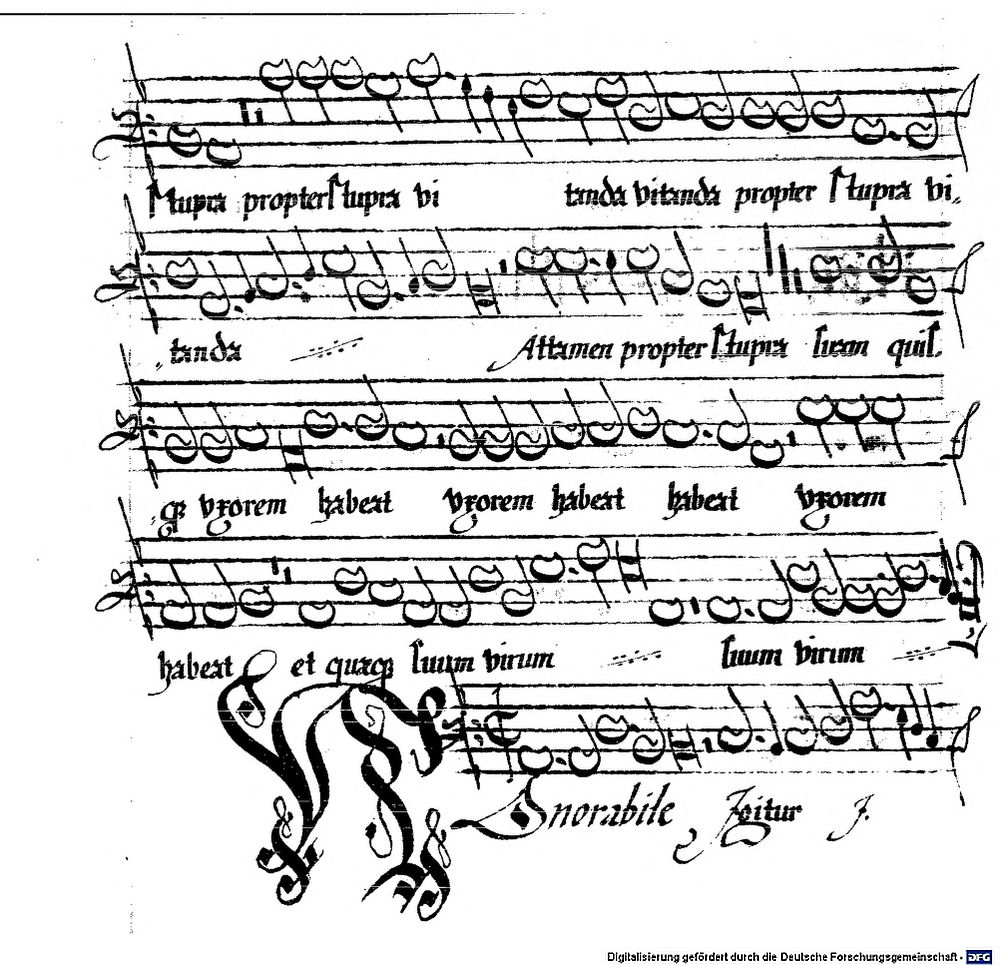 stupra propter stupra vi tanda vitanda propter stupra vi
tanda Attamen propter stupra suam quis
q; vxorem habeat vxorem habeat habeat vxorem
habeat et quæq; suum virum suum virum
Honorabile Igitur J.
Digitalisierung gefördert durch die Deutsche Forschungsgemeinschaft - DFG